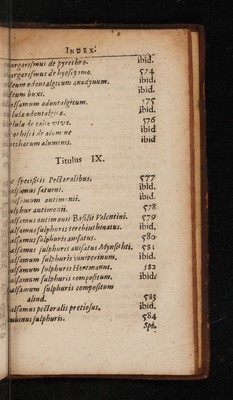 INDEX.
argarismus de pyrethro. ibid.
argarismus de hyoscyamo. 574
leum odontalgicum anodynum. ibid.
leum buxi. ibid.
alsamum odontalgicum. 575
ilula odontalgica. ibid.
ilula de calce vivo. 576
ibid
saccharum aluminis. ibid
Titulus IX.
De specificis Pectoralibus. 577
alsamus saturni. ibid.
alsamum antimonii. ibid.
ulphur antimonii. 578
alsamus antimonii Basilii Valentini. 579
alsamus sulphuris terebinthinatus. ibid.
alsamus sulphuris anisatus. 580
alsamus sulphuris anisatus Mynsichti. 581
alsamum sulphuris juniperinum. ibid.
alsamum sulphuris Hortmanni. 582
alsamum sulphuris compositum. ibid.
alsamum sulphuris compositum
aliud. 583
alsamus pectoralis pretiosus. ibid.
sulphuris. 584